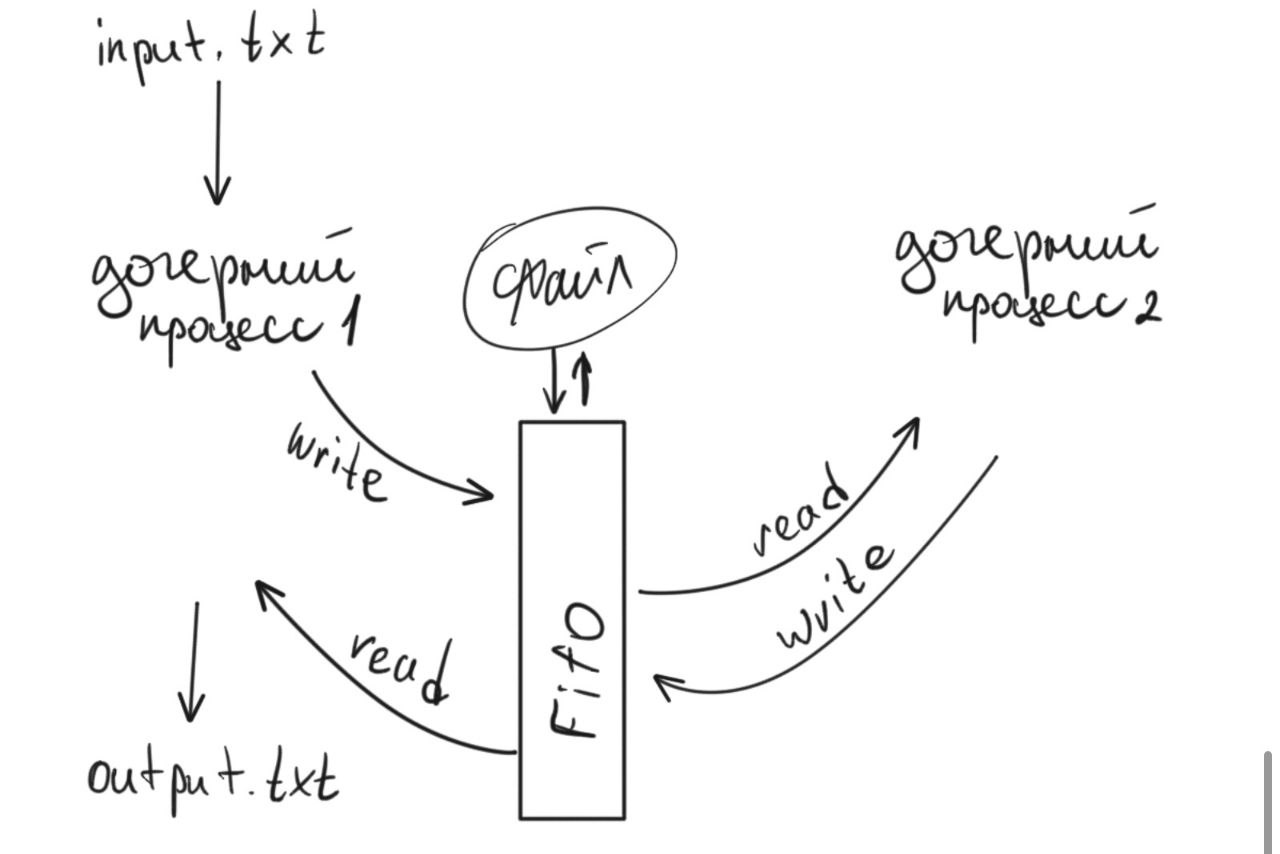 input.txt
дочерний
процесс 1
файл
дочерний
процесс 2
write
read
write
read
Fifo
output.txt